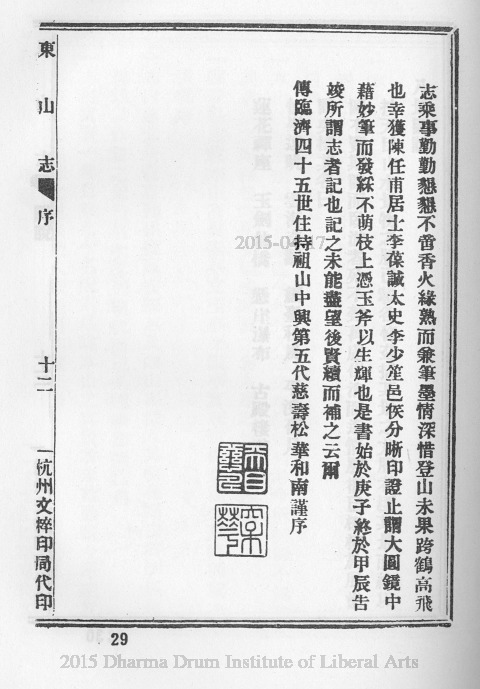 志乘事勤勤懇懇不啻香火緣熟而兼筆墨情深惜登山未果跨鶴高飛
也幸獲陳任甫居士李葆誠太史李少笙邑侯分晰印證止謂大圓鏡中
藉妙筆而發綵不萌枝上憑玉斧以生輝也是書始於庚子終於甲辰告
竣所謂志者記也記之未能盡望後賢續而補之云爾
傳臨濟四十五世住持祖山中興第五代慈壽松華和南謹序
東山志 序 十二 杭州文粹印局代印
29
2015-04-17
2015 Dharma Drum Institute of Liberal Arts